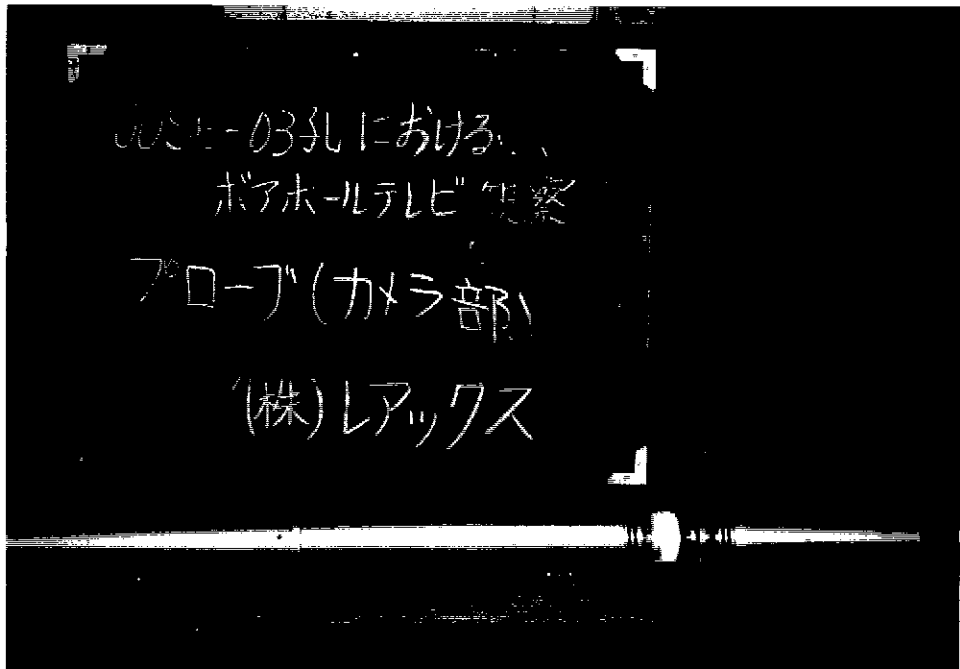 -03孔における
ボアホールテレビ観察
プローブ(カメラ部)
(株)レアックス